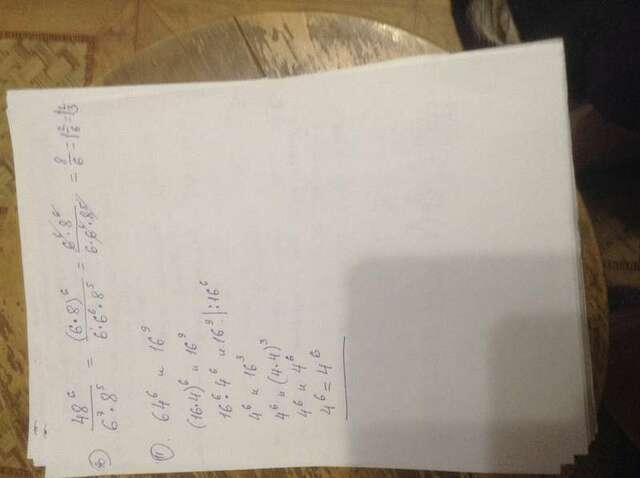 48⁶ / 6⁷·8⁵ = (6·8)⁶ / 6·6⁶·8⁵ = 6⁶·8⁶ / 6·6⁶·8⁵ = 8/6 = 1 2/6 =
11). 64⁶ и 16⁹
(16·4)⁶ и 16⁹
16⁶·4⁶ и 16⁹ |:16⁶
4⁶ и 16³
4⁶ и (4·4)³
4⁶ и 4⁶
4⁶ = 4⁶